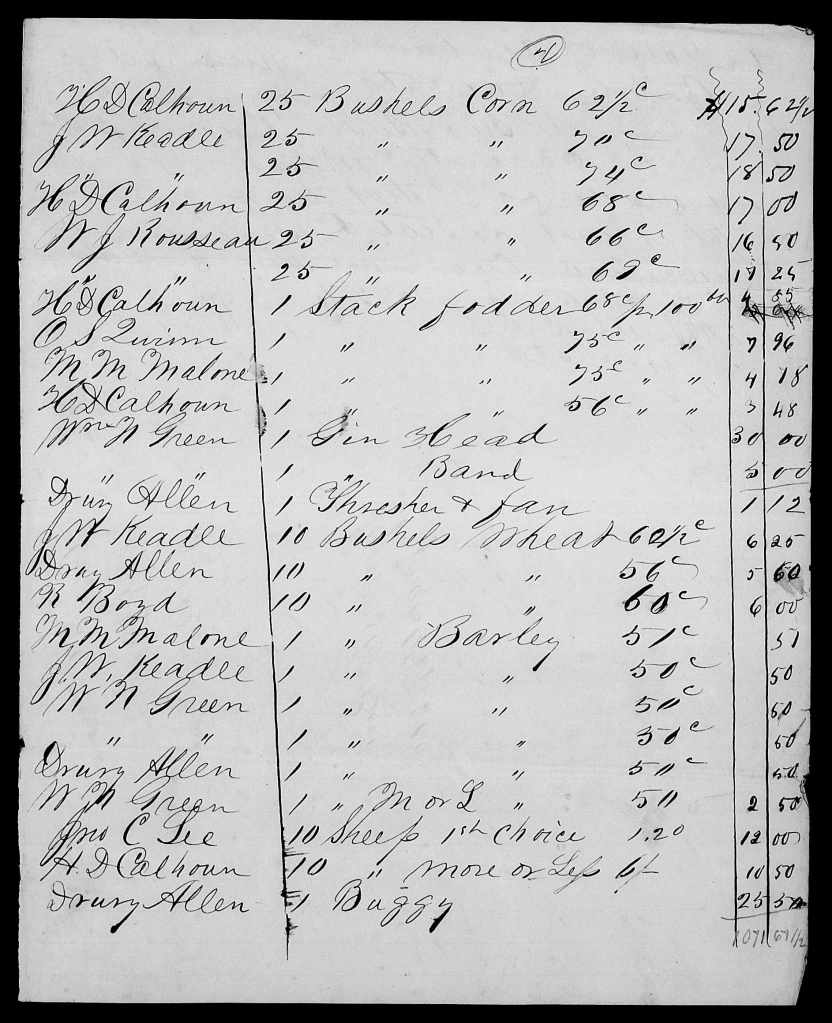 H D Calhoun 25 Bushels Corn 62½c $15. 62½
J W Keadle 25 " " 70c 17. 50
" " 25 " " 74c 18 50
H D Calhoun 25 " " 68c 17 00
W J Rousseau 25 " " 66c 16 50
" " 25 " " 69c 17 25
H D Calhoun 1 Stack fodder 68c pr 100 lbs 4 55
O S Quinn 1 " " 75c " " 7 96
M M Malone 1 " " 75c " " 4 18
H D Calhoun 1 " " 56c " " 48
Wm N Green 1 Gin Head 30 00
" " 1 " Band 5 00
Drury Allen 1 Thresher & fan 1 12
J W Keadle 10 Bushels Wheat 62½c 6 25
Drury Allen 10 " " 56c 5 60
R Boyd 10 " " 60c 6 00
M M Malone 1 " Barley 51c 51
J. W. Keadle 1 " " 50c 50
W N Green 1 " " 50c 50
" " 1 " " 50c 50
Drury Allen 1 " " 50c 50
W N Green 1 " M or L " 50 2 50
Jno C Lee 10 Sheep 1st Choice 1.20 12 00
H D Calhoun 10 " more or Less 6/- 10 50
Drury Allen 1 Buggy 25 50
1071 61½